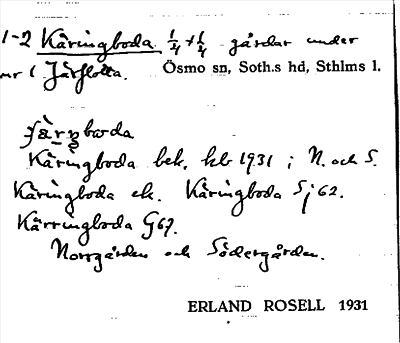 1-2 Käringboda 1/4 + 1/4 gårdar under
nr 1 Järflotta. Ösmo sn, Soth.s hd, Sthlms l.
Käringboda bek. hb 1931 ; N. och S.
Käringboda ek. Käringboda Sj 62.
Kärringboda G 67.
Norrgården och Södergården.
ERLAND ROSELL 1931